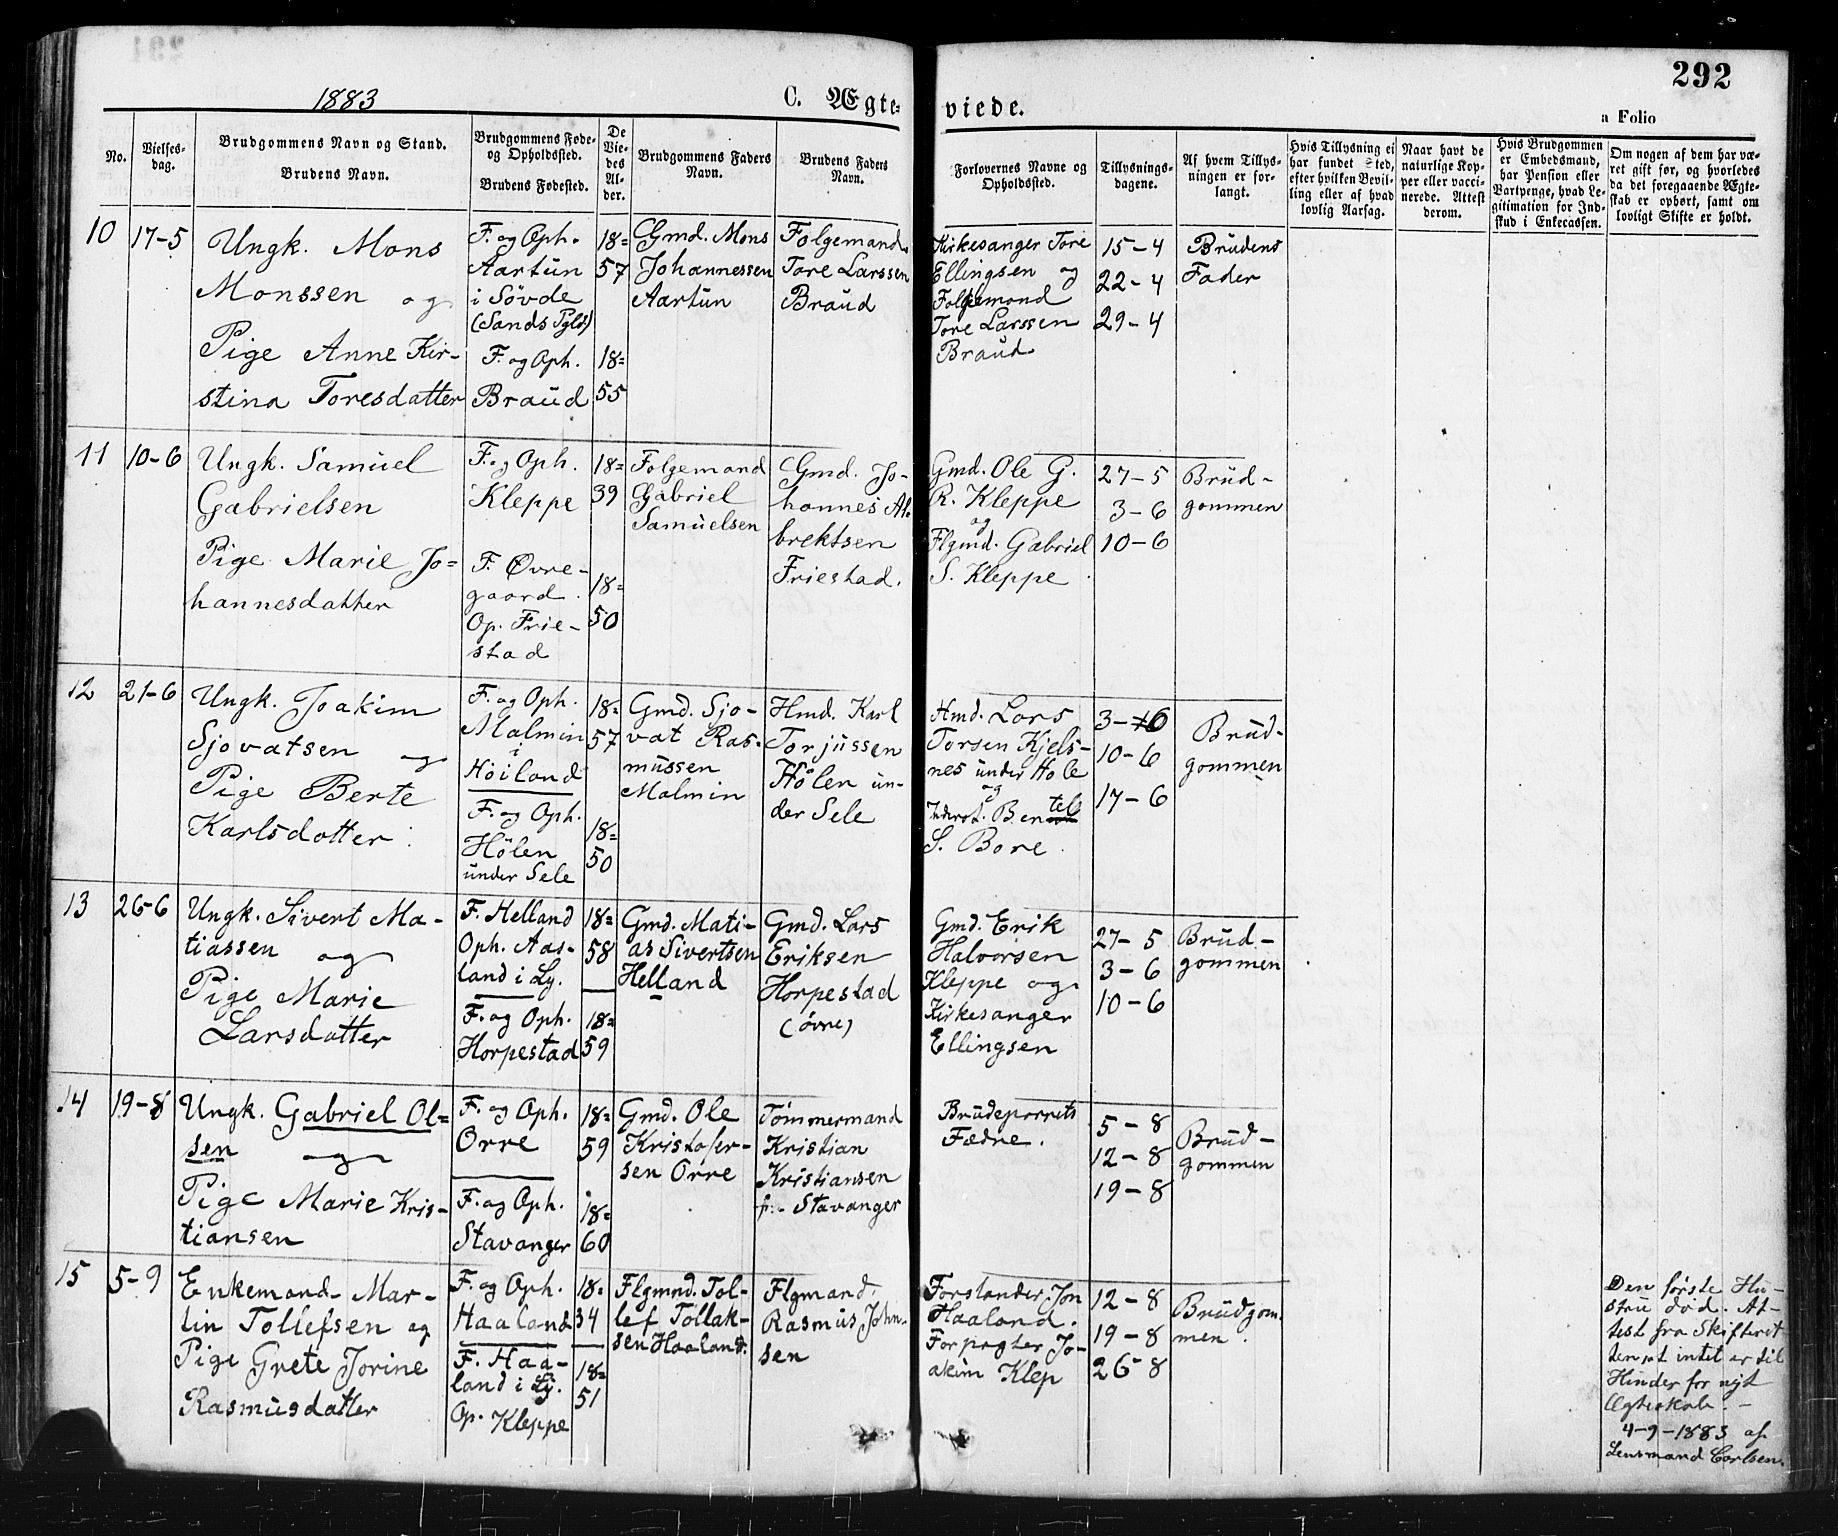 292
1883
C. Ægte-
viede.
a Folio
No.
Vielses-
dag.
Brudgommens Navn og Stand.
Brudens Navn.
Brudgommens Føde-
og Opholdssted.
Brudens Fødested.
De
Vie-
des
Al-
der.
Brudgommens Faders
Navn.
Brudens Faders
Navn.
Forlovernes Navne og
Opholdssted.
Tillysnings-
dagene.
Af hvem Tillys-
ningen er for-
langt.
Hvis Tillysning ei
har fundet Sted,
efter hvilken Bevil-
ling eller af hvad
lovlig Aarsag.
Naar havt de
naturlige Kop-
per eller vacci-
nerede. Attest
derom.
Hvis Brudgommen
er Embedsmand,
har Pension eller
Vartpenge, hvad Le-
gitimation for Ind-
skud i Enkecassen.
Om nogen af dem har væ-
ret gift før, og hvorledes
da det foregaaende Ægte-
skab er ophørt, samt om
lovligt Skifte er holdt.
10
17-5
Ungk. Mons
Monssen og
Pige Anne Kir-
stina Toresdatter
F. og Oph.
Aartun
i Søvde
(Sands Pgld)
F. og Oph.
Braud
18=
57
18=
55
Gmd. Mons
Johannessen
Aartun
Folgemand
Tore Larssen
Braud
Kirkesanger Tore
Ellingsen og
Folgemand
Tore Larssen
Braud.
15-4
22-4
29-4
Brudens
Fader
11
10-6
Ungk. Samuel
Gabrielsen
Pige Marie Jo=
hannesdatter
F. og Oph.
Kleppe
F. Øvre-
gaard.
Op. Frie-
stad
18=
39
18=
50
Folgemand
Gabriel
Samuelsen
Gmd. Jo-
hannes Al-
brektsen
Friestad.
Gmd. Ole G.
R. Kleppe
og
Flgmd. Gabriel
S. Kleppe
27-5
3-6
10-6
Brud-
gommen
12
21-6
Ungk. Joakim
Sjovatsen og
Pige Berte
Karlsdatter
F. og Oph.
Malmin
i
Høiland
F. og Oph.
Hølen
under Sele
18=
57
18=
50
Gmd. Sjo-
vat Ras-
mussen
Malmin
Hmd. Karl
Torjussen
Hølen un-
der Sele
Hmd. Lars
Torsen Kjels-
nes under Hole
og
Inderst. Bentel
S. Bore
3-6
10-6
17-6
Brud-
gommen
13
26-6
Ungk. Sivert Ma-
tiassen og
Pige Marie
Larsdatter
F. Helland
Oph. Aas-
land i Ly.
F. og Oph.
Horpestad
18=
58
18=
59
Gmd. Mati-
as Sivertsen
Helland
Gmd. Lars
Eriksen
Horpestad
(øvre)
Gmd. Erik
Halvorsen
Kleppe og
Kirkesanger
Ellingsen
27-5
3-6
10-6
Brud-
gommen
14
19-8
Ungk. Gabriel Ol=
sen og
Pige Marie Kris-
tiansen
F. og Oph.
Orre
F. og Oph.
Stavanger
18=
59
18=
60
Gmd. Ole
Kristofer-
sen Orre
Tømmermand
Kristian
Kristiansen
fr. Stavanger
Brudeparrets
Fædre.
5-8
12-8
19-8
Brud-
gommen
15
5-9
Enkemand Mar-
tin Tollefsen og
Pige Grete Jorine
Rasmusdatter
F. og Oph.
Haaland
F. Haa-
land i Ly.
Op. Kleppe
18=
34
18=
51
Flgmnd. Tol-
lef Tollak-
sen Haaland.
Flgmand.
Rasmus John-
sen
Forstander Jon
Haaland.
Forpagter Jo-
akim Klep
12-8
19-8
26-8
Brudgom-
men.
Den første Hu-
stru død. At-
test fra Skifteret-
ten at intet er til
Hinder for nyt
Ægteskab. -
4-9-1883 af
Lensmand Carlsen.